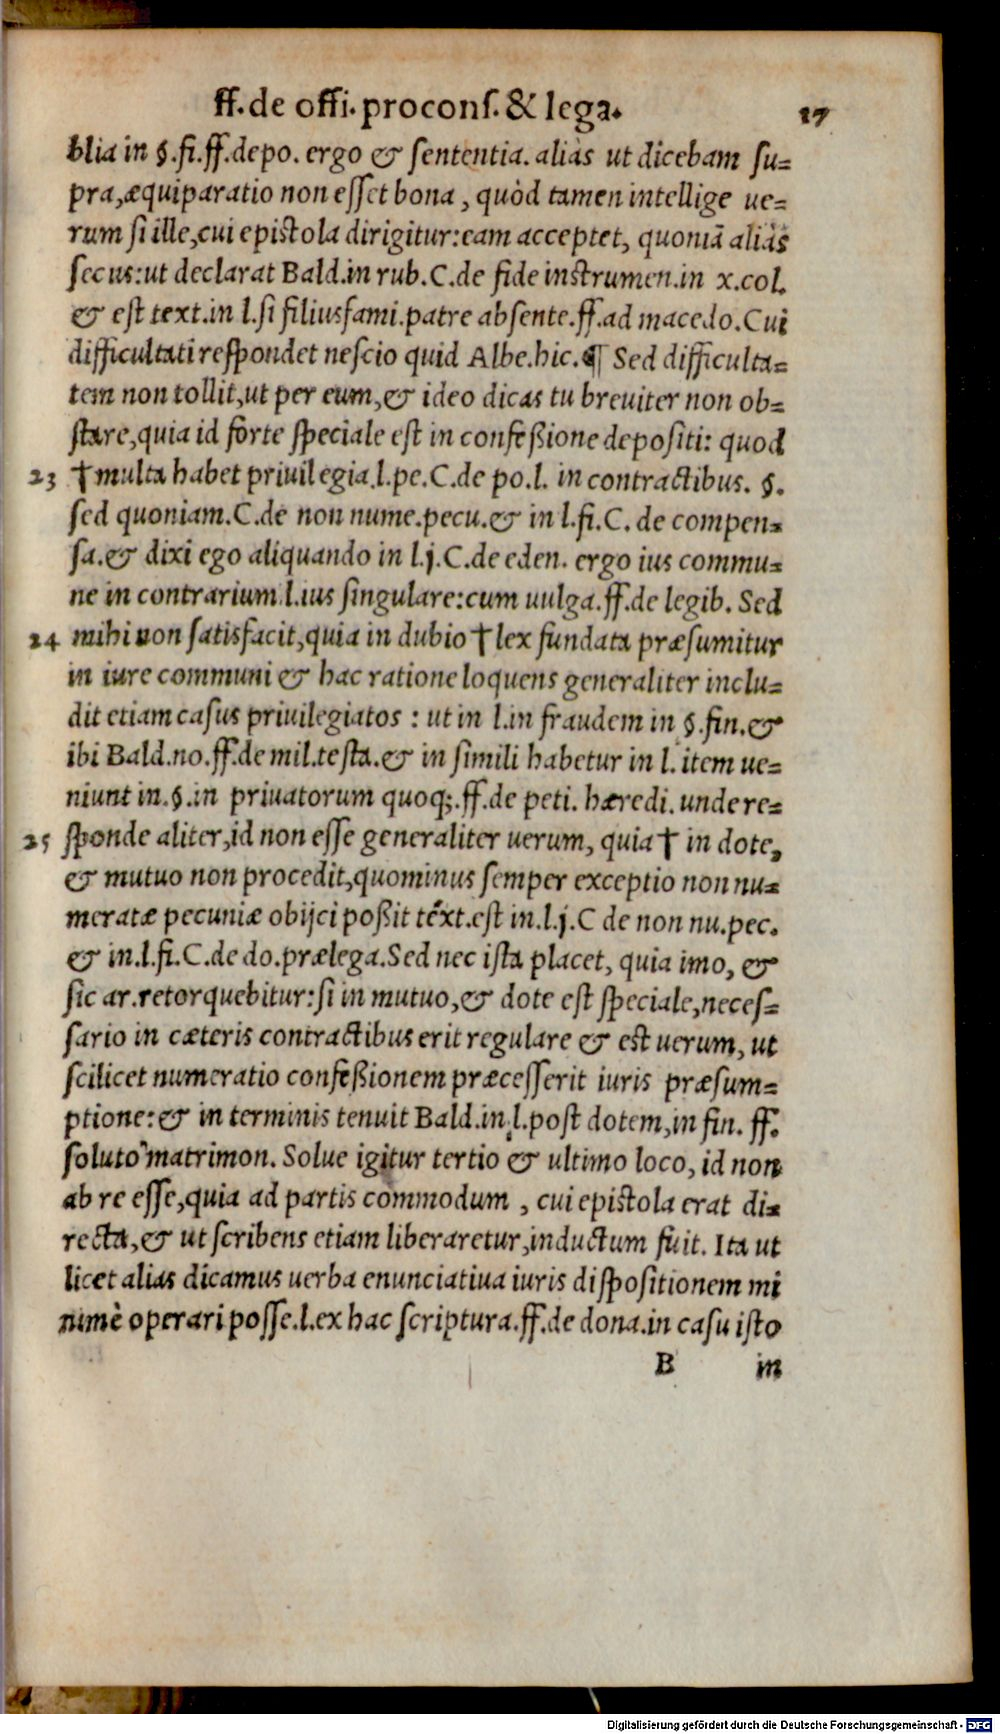 ff.de offi.procons.& lega. 17
blia in §.fi.ff.depo. ergo & sententia. aliàs ut dicebam su-
pra,æquiparatio non esset bona, quòd tamen intellige ue-
rum si ille,cui epistola dirigitur:eam acceptet, quoniā aliàs
secus:ut declarat Bald.in rub.C.de fide instrumen.in x.col.
& est text.in l.si filiusfami.patre absente.ff.ad macedo.Cui
difficultati respondet nescio quid Albe.hic.¶ Sed difficulta-
tem non tollit,ut per eum,& ideo dicas tu breuiter non ob-
stare,quia id forte speciale est in confeßione depositi: quod
23 †multa habet priuilegia.l.pe.C.de po.l. in contractibus. §.
sed quoniam.C.de non nume.pecu.& in l.fi.C. de compen-
sa.& dixi ego aliquando in l.j.C.de eden. ergo ius commu-
ne in contrarium.l.ius singulare:cum uulga.ff.de legib. Sed
24 mihi non satisfacit,quia in dubio † lex fundata præsumitur
in iure communi & hac ratione loquens generaliter inclu-
dit etiam casus priuilegiatos : ut in l.in fraudem in §.fin.&
ibi Bald.no.ff.de mil.testa.& in simili habetur in l.item ue-
niunt in.§.in priuatorum quoq;.ff.de peti. hæredi. unde re-
25 sponde aliter,id non esse generaliter uerum, quia † in dote,
& mutuo non procedit,quominus semper exceptio non nu-
meratæ pecuniæ obijci poßit text.est in.l.j.C de non nu.pec.
& in.l.fi.C.de do.prælega.Sed nec ista placet, quia imo, &
sic ar.retorquebitur:si in mutuo,& dote est speciale,neces-
sario in cæteris contractibus erit regulare & est uerum, ut
scilicet numeratio confeßionem præcesserit iuris præsum-
ptione:& in terminis tenuit Bald.in.l.post dotem,in fin. ff.
soluto matrimon. Solue igitur tertio & ultimo loco, id non
ab re esse,quia ad partis commodum , cui epistola erat di-
recta,& ut scribens etiam liberaretur,inductum fuit. Ita ut
licet alias dicamus uerba enunciatiua iuris dispositionem mi
nimè operari posse.l.ex hac scriptura.ff.de dona.in casu isto
B in
Digitalisierung gefördert durch die Deutsche Forschungsgemeinschaft - DFG